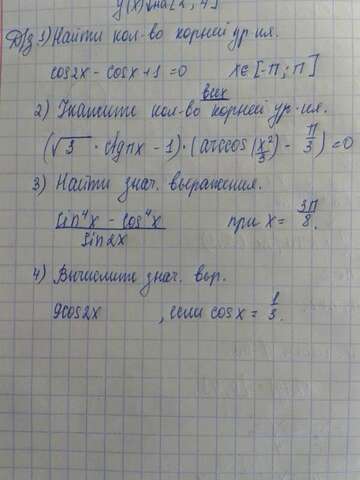 y(x) на [2; 4]
Д/з. 1) Найти кол-во корней ур-ия.
cos2x - cosx + 1 = 0 x∈[-π; π]
2) Укажите кол-во всех корней ур-ия.
(√3 · ctgπx - 1) · (arccos(x²/3) - π/3) = 0
3) Найти знач. выражения.
(sin⁴x - cos⁴x)/sin2x при x = 3π/8.
4) Вычислите знач. выр.
9cos2x , если cosx = 1/3.